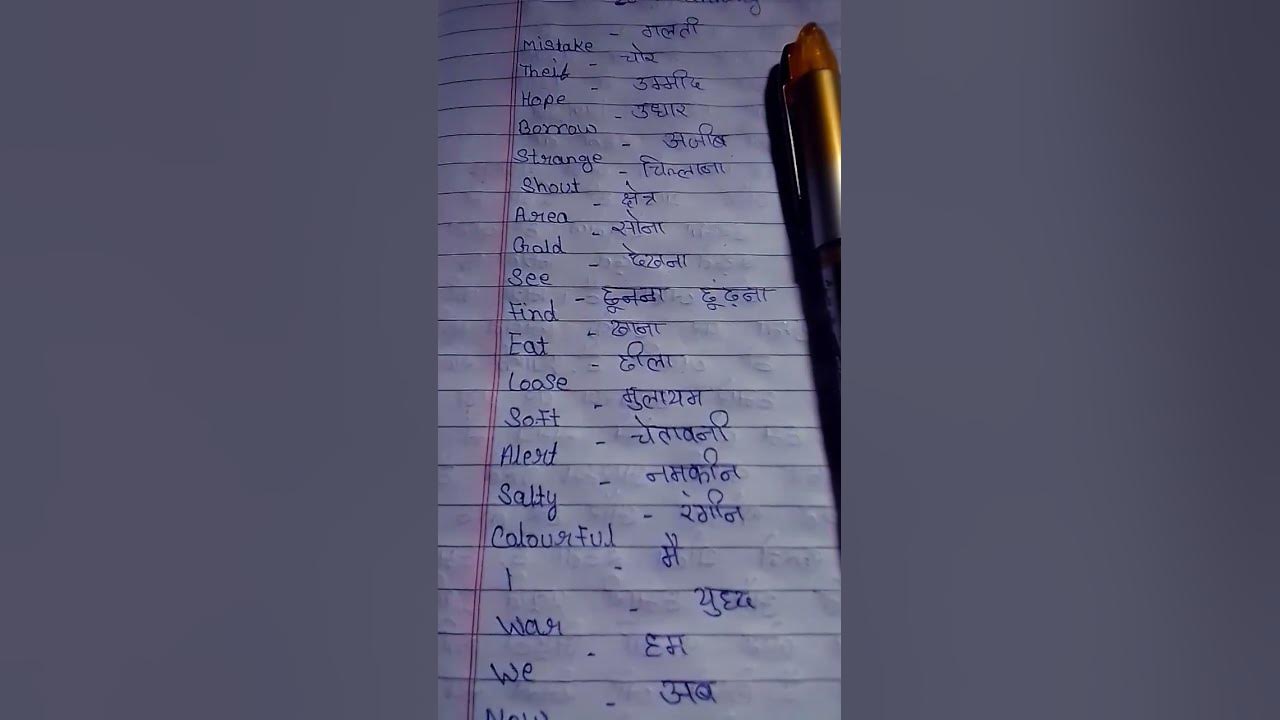 Mistake - गलती
Theif - चोर
Hope - उम्मीद
Borrow - उधार
Strange - अजीब
Shout - चिल्लाना
Area - क्षेत्र
Gold - सोना
See - देखना
Find - ढूनना ढूंढ़ना
Eat - खाना
Loose - ढीला
Soft - मुलायम
Alert - चेतावनी
Salty - नमकीन
Colourful - रंगीन
I - मै
War - युध्द
We - हम
Now - अब